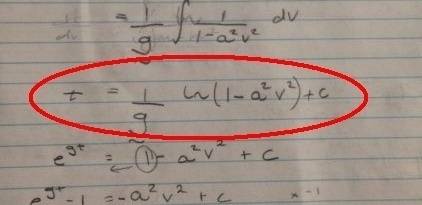 = 1/g ∫ 1/(1-a²v²) dv
t = 1/g ln(1-a²v²)+c
e^gt = 1 - a²v² + c
e^gt - 1 = -a²v² + c × -1